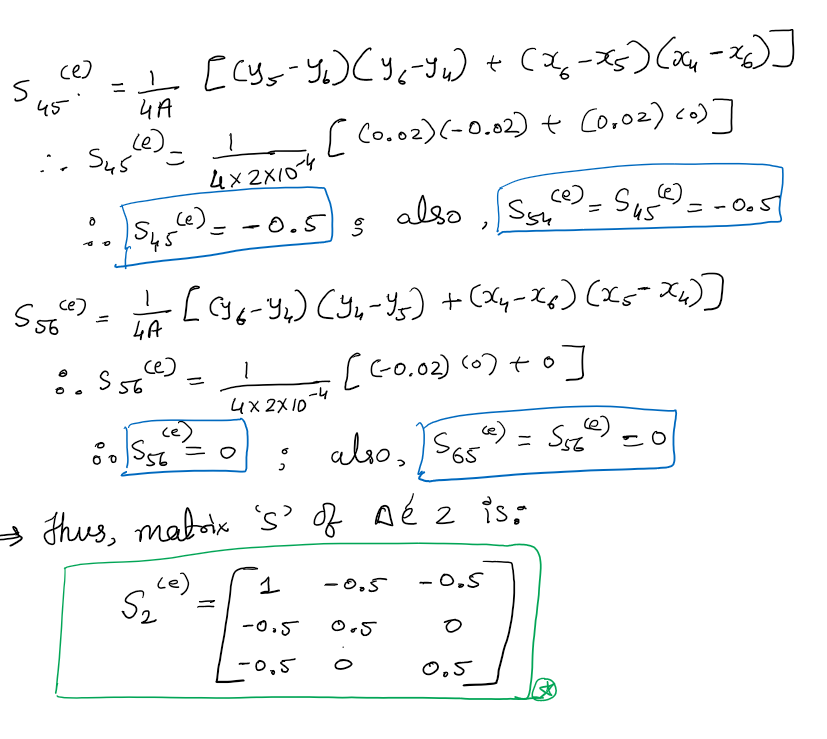 S₄₅⁽ᵉ⁾ = 1/4A [(y₅-y₆)(y₆-y₄) + (x₆-x₅)(x₄-x₆)]
∴ S₄₅⁽ᵉ⁾ = 1/4×2×10⁻⁴ [(0.02)(-0.02) + (0.02)(0)]
∴ S₄₅⁽ᵉ⁾ = -0.5 ; also, S₅₄⁽ᵉ⁾ = S₄₅⁽ᵉ⁾ = -0.5
S₅₆⁽ᵉ⁾ = 1/4A [(y₆-y₄)(y₄-y₅) + (x₄-x₆)(x₅-x₄)]
∴ S₅₆⁽ᵉ⁾ = 1/4×2×10⁻⁴ [(-0.02)(0) + 0]
∴ S₅₆⁽ᵉ⁾ = 0 ; also, S₆₅⁽ᵉ⁾ = S₅₆⁽ᵉ⁾ = 0
⇒ Thus, matrix 'S' of Δé 2 is:
S₂⁽ᵉ⁾ = [1 -0.5 -0.5
-0.5 0.5 0
-0.5 0 0.5]